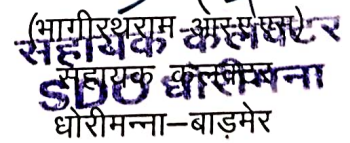 (भागीरथराम आर.ए.एस.)
सहायक कलेक्टर
सहायक कलेक्टर
SDO धोरीमन्ना
धोरीमन्ना–बाड़मेर